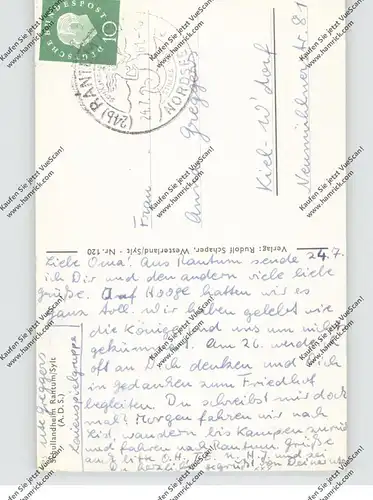 DEUTSCHE BUNDESPOST
10
(24b) RANTUM
NORDSEE
Frau
Kiel-W'dorf
Neumühlener str. 81
Verlag: Rudolf Schaper, Westerland/Sylt - Nr. 120
24.7.
Liebe Oma! Aus Rantum sende
ich Dir und den andern viele liebe
Grüße. Auf Hooge hatten wir es
ganz toll. Wir haben gelebt wie
die Könige und uns um nichts
gekümmert. Am 26. werde ich
oft an Dich denken und Dich
in Gedanken zum Friedhof
begleiten. Du schreibst mir doch
mal? Morgen fahren wir nach
List, wandern bis Kampen zurück
und fahren nach Rantum. Grüße
an
herzlichst gegrüßt von Deiner
Schullandheim Rantum/Sylt
(A. D. S.)
Laienspielgruppe
Kaufen Sie jetzt VueScan!
www.hamrick.com